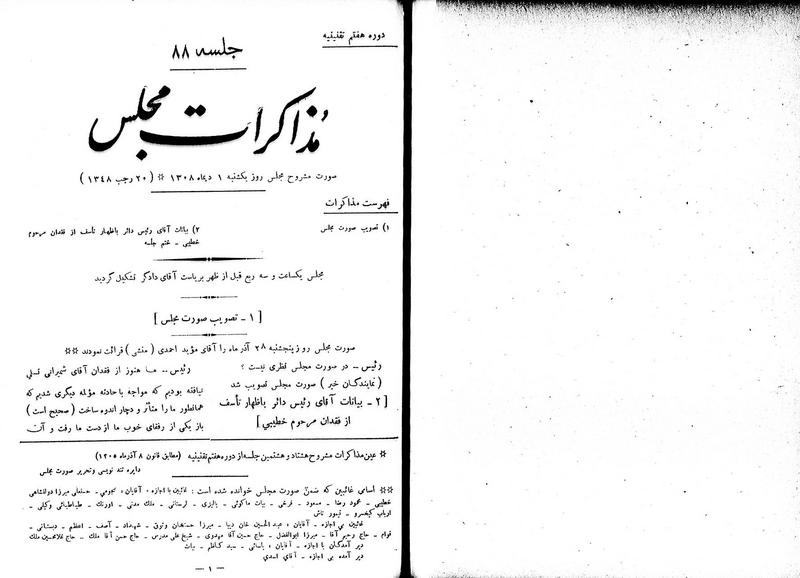 دوره هفتم تقنینیه
جلسه ۸۸
مذاکرات مجلس
صورت مشروح مجلس روز یکشنبه ۱ دیماه ۱۳۰۸ * (۲۰ رجب ۱۳۴۸)
فهرست مذاکرات
۱) تصویب صورت مجلس
۲) بیانات آقای رئیس دائر باظهار تأسف از فقدان مرحوم
خطیبی - ختم جلسه
مجلس یکساعت و سه ربع قبل از ظهر بریاست آقای دادگر تشکیل گردید
[ ۱ - تصویب صورت مجلس ]
صورت مجلس روز پنجشنبه ۲۸ آذرماه را آقای مؤید احمدی (منشی) قرائت نمودند **
رئیس - در صورت مجلس نظری نیست ؟
(نمایندگان خیر) صورت مجلس تصویب شد
[ ۲ - بیانات آقای رئیس دائر باظهار تأسف
از فقدان مرحوم خطیبی ]
رئیس - ما هنوز از فقدان آقای شمیرانی تسلی
نیافته بودیم که مواجه با حادثه مؤلمه دیگری شدیم که
همانطور ما را متأثر و دچار اندوه ساخت (صحیح است)
باز یکی از رفقای خوب ما از دست ما رفت و آن
* عین مذاکرات مشروح هشتاد و هشتمین جلسه از دوره هفتم تقنینیه (مطابق قانون ۸ آذرماه ۱۳۰۵)
دایره تند نویسی و تحریر صورت مجلس
** اسامی غائبین که ضمن صورت مجلس خوانده شده است : غائبین با اجازه - آقایان : نجومی - حسنعلی میرزا دولتشاهی
خطیبی - محمود رضا - مسعود - فرخی - بیات ماکوئی - بالیزی - لرستانی - ملک مدنی - اورنگ - طباطبائی وکیلی -
ارباب کیخسرو - تیمور تاش
غائبین بی اجازه - آقایان : عبدالحسین خان دیبا - میرزا حسنخان وثوق - شهداد - آصف - اعظم - دبستانی -
قوام - حاج رحیم آقا - میرزا ابوالفضل - حاج حسین آقا مهدوی - شیخ علی مدرس - حاج حسن آقا ملک - حاج غلامحسین ملک
دیر آمدگان با اجازه - آقایان : یاسائی - سید کاظم - بیات
دیر آمده بی اجازه - آقای اسدی
- ۱ -